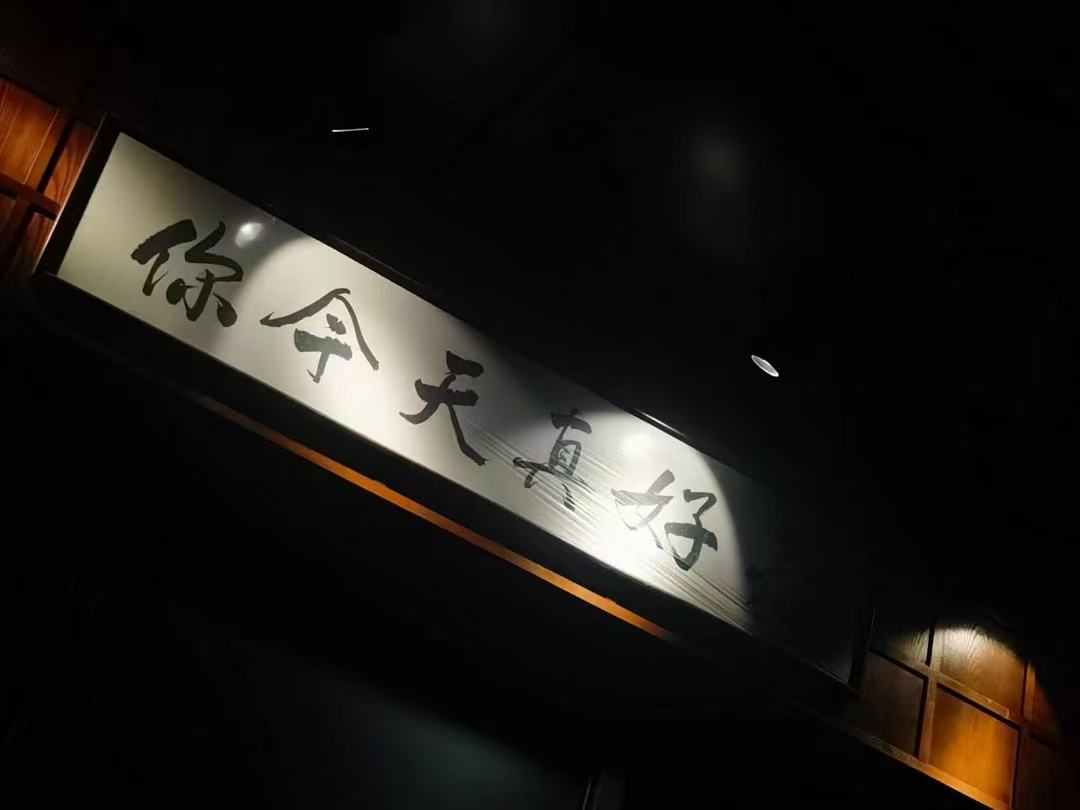 你今天真好